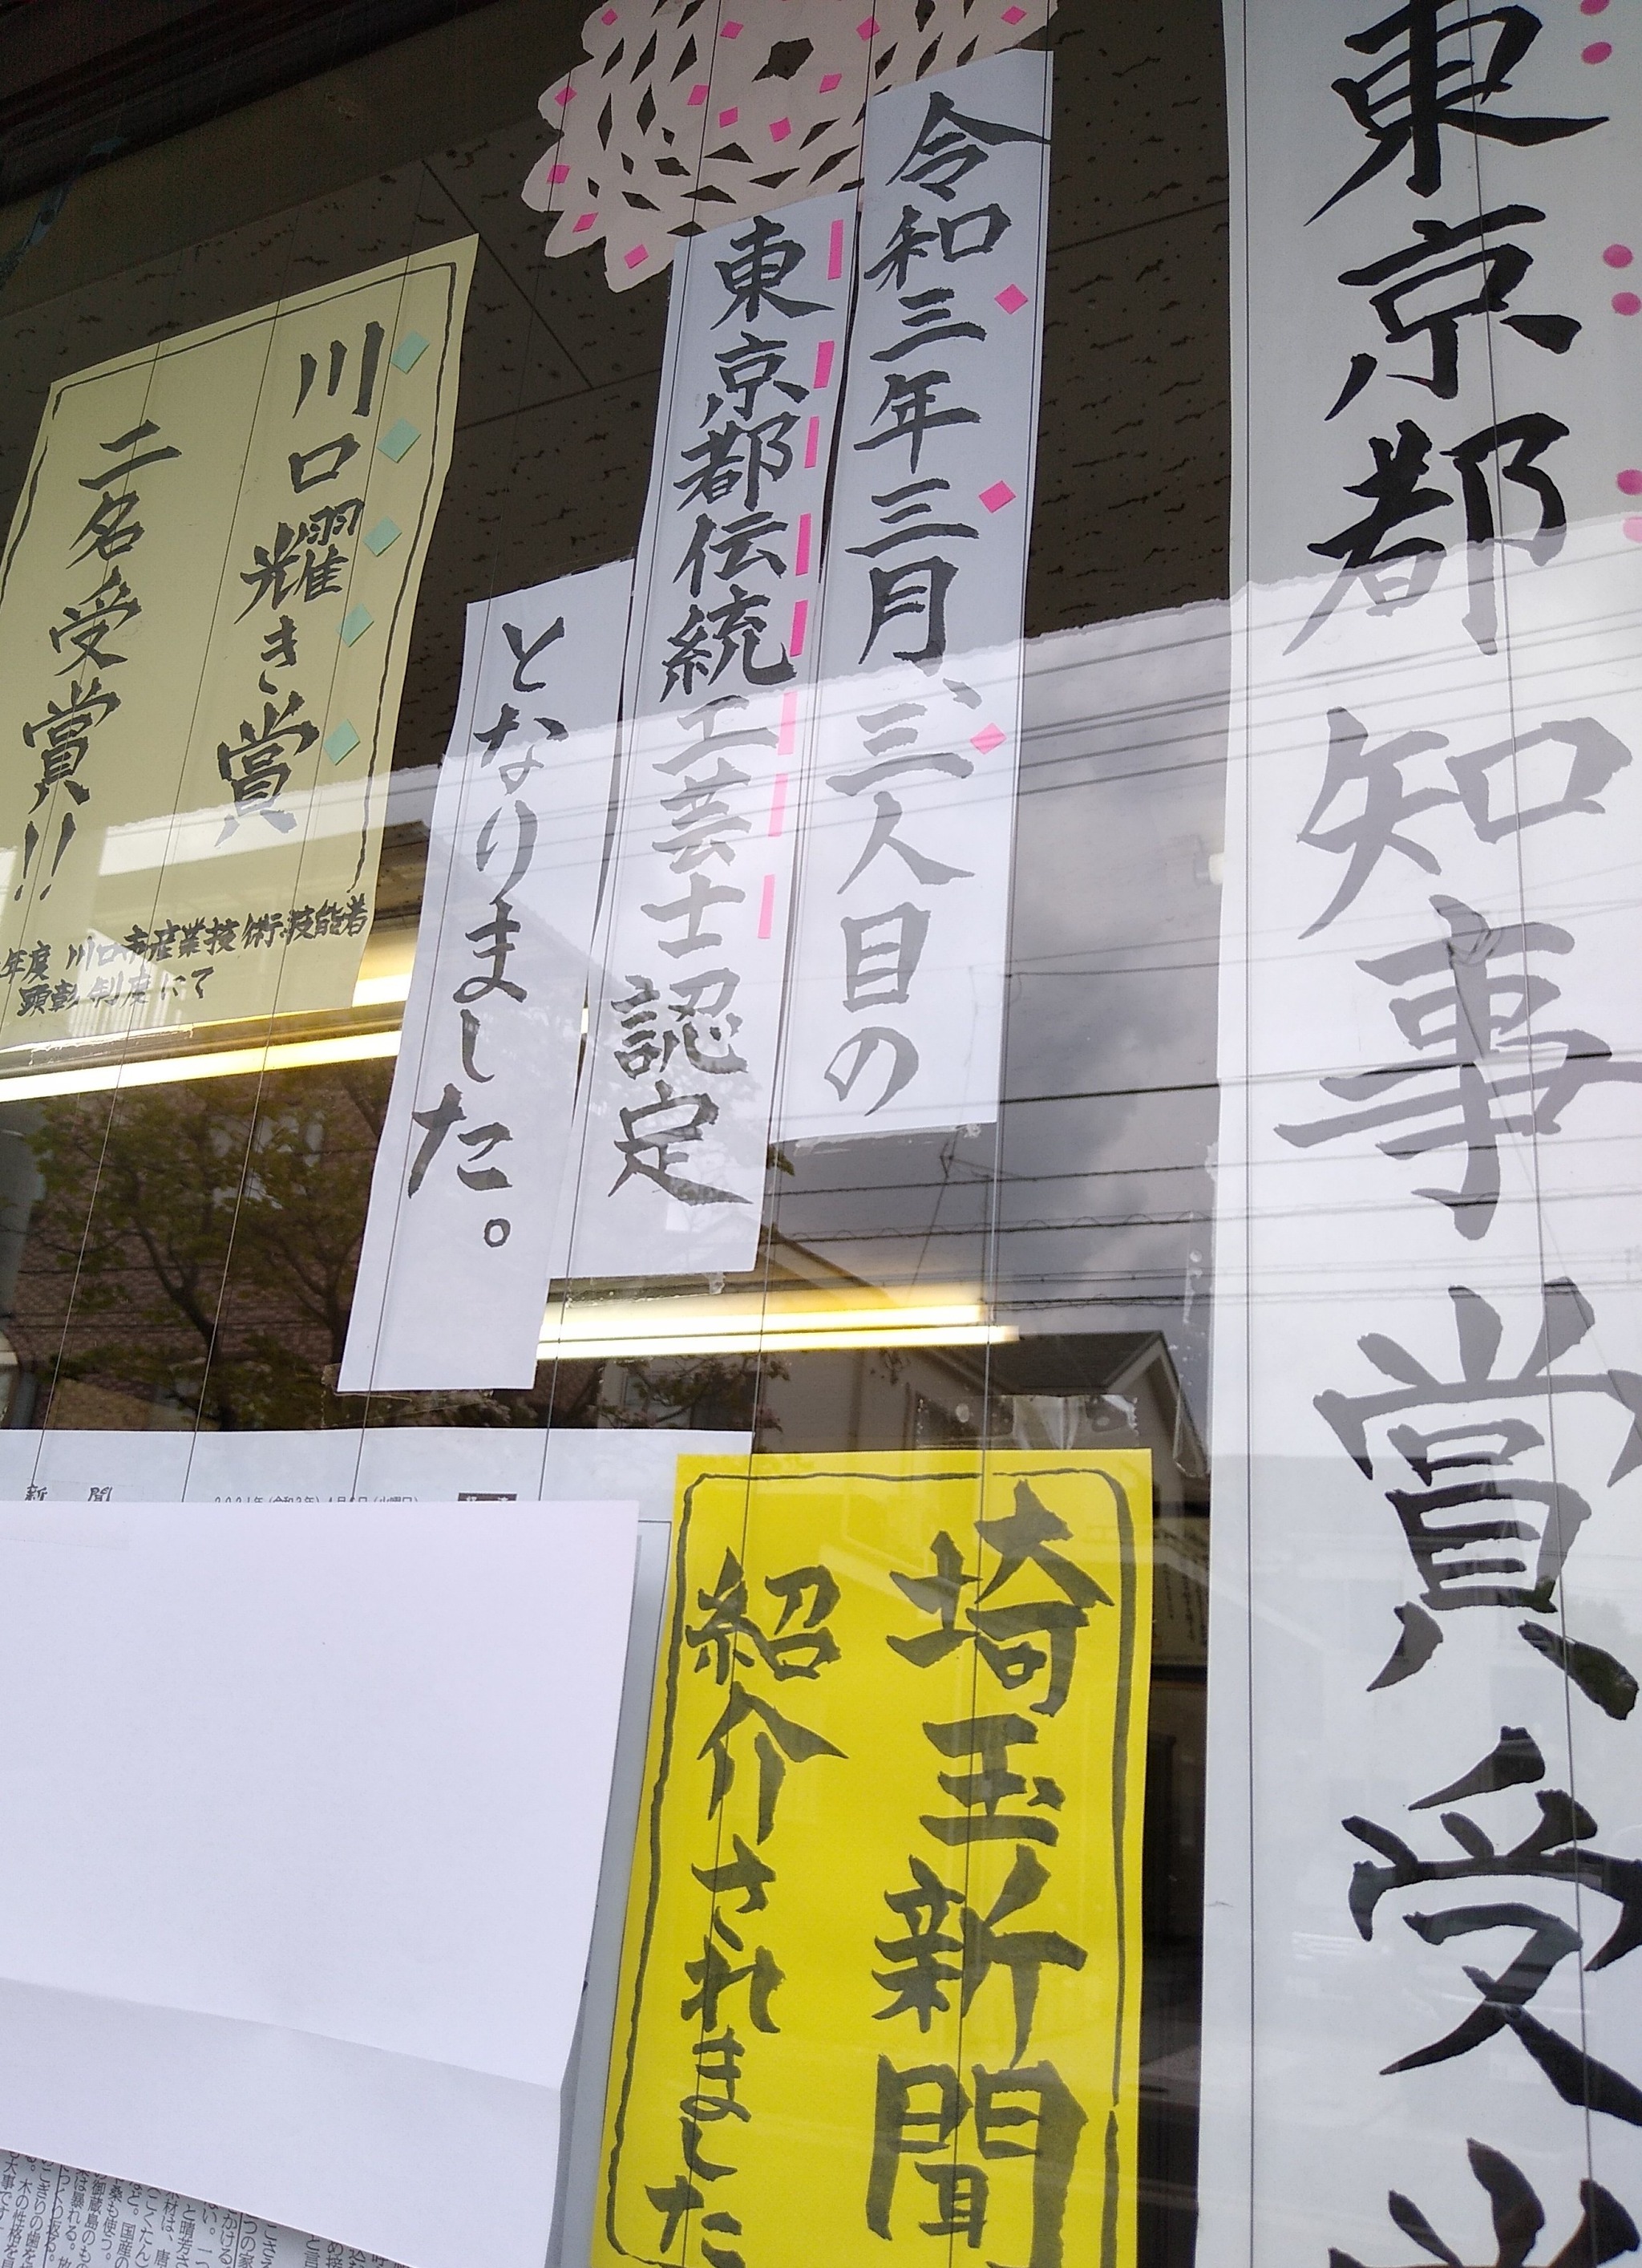 東京都知事賞受
令和三年三月、三人目の
東京都伝統工芸士認定
となりました。
川口耀き賞
二名受賞!!
年度 川口市産業技術・技能者
顕彰制度にて
埼玉新聞
紹介されました
新聞